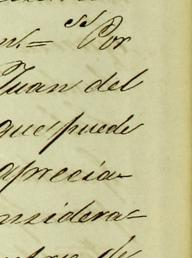 n.= Por
Juan del
que puede
aprecia-
onsidera-